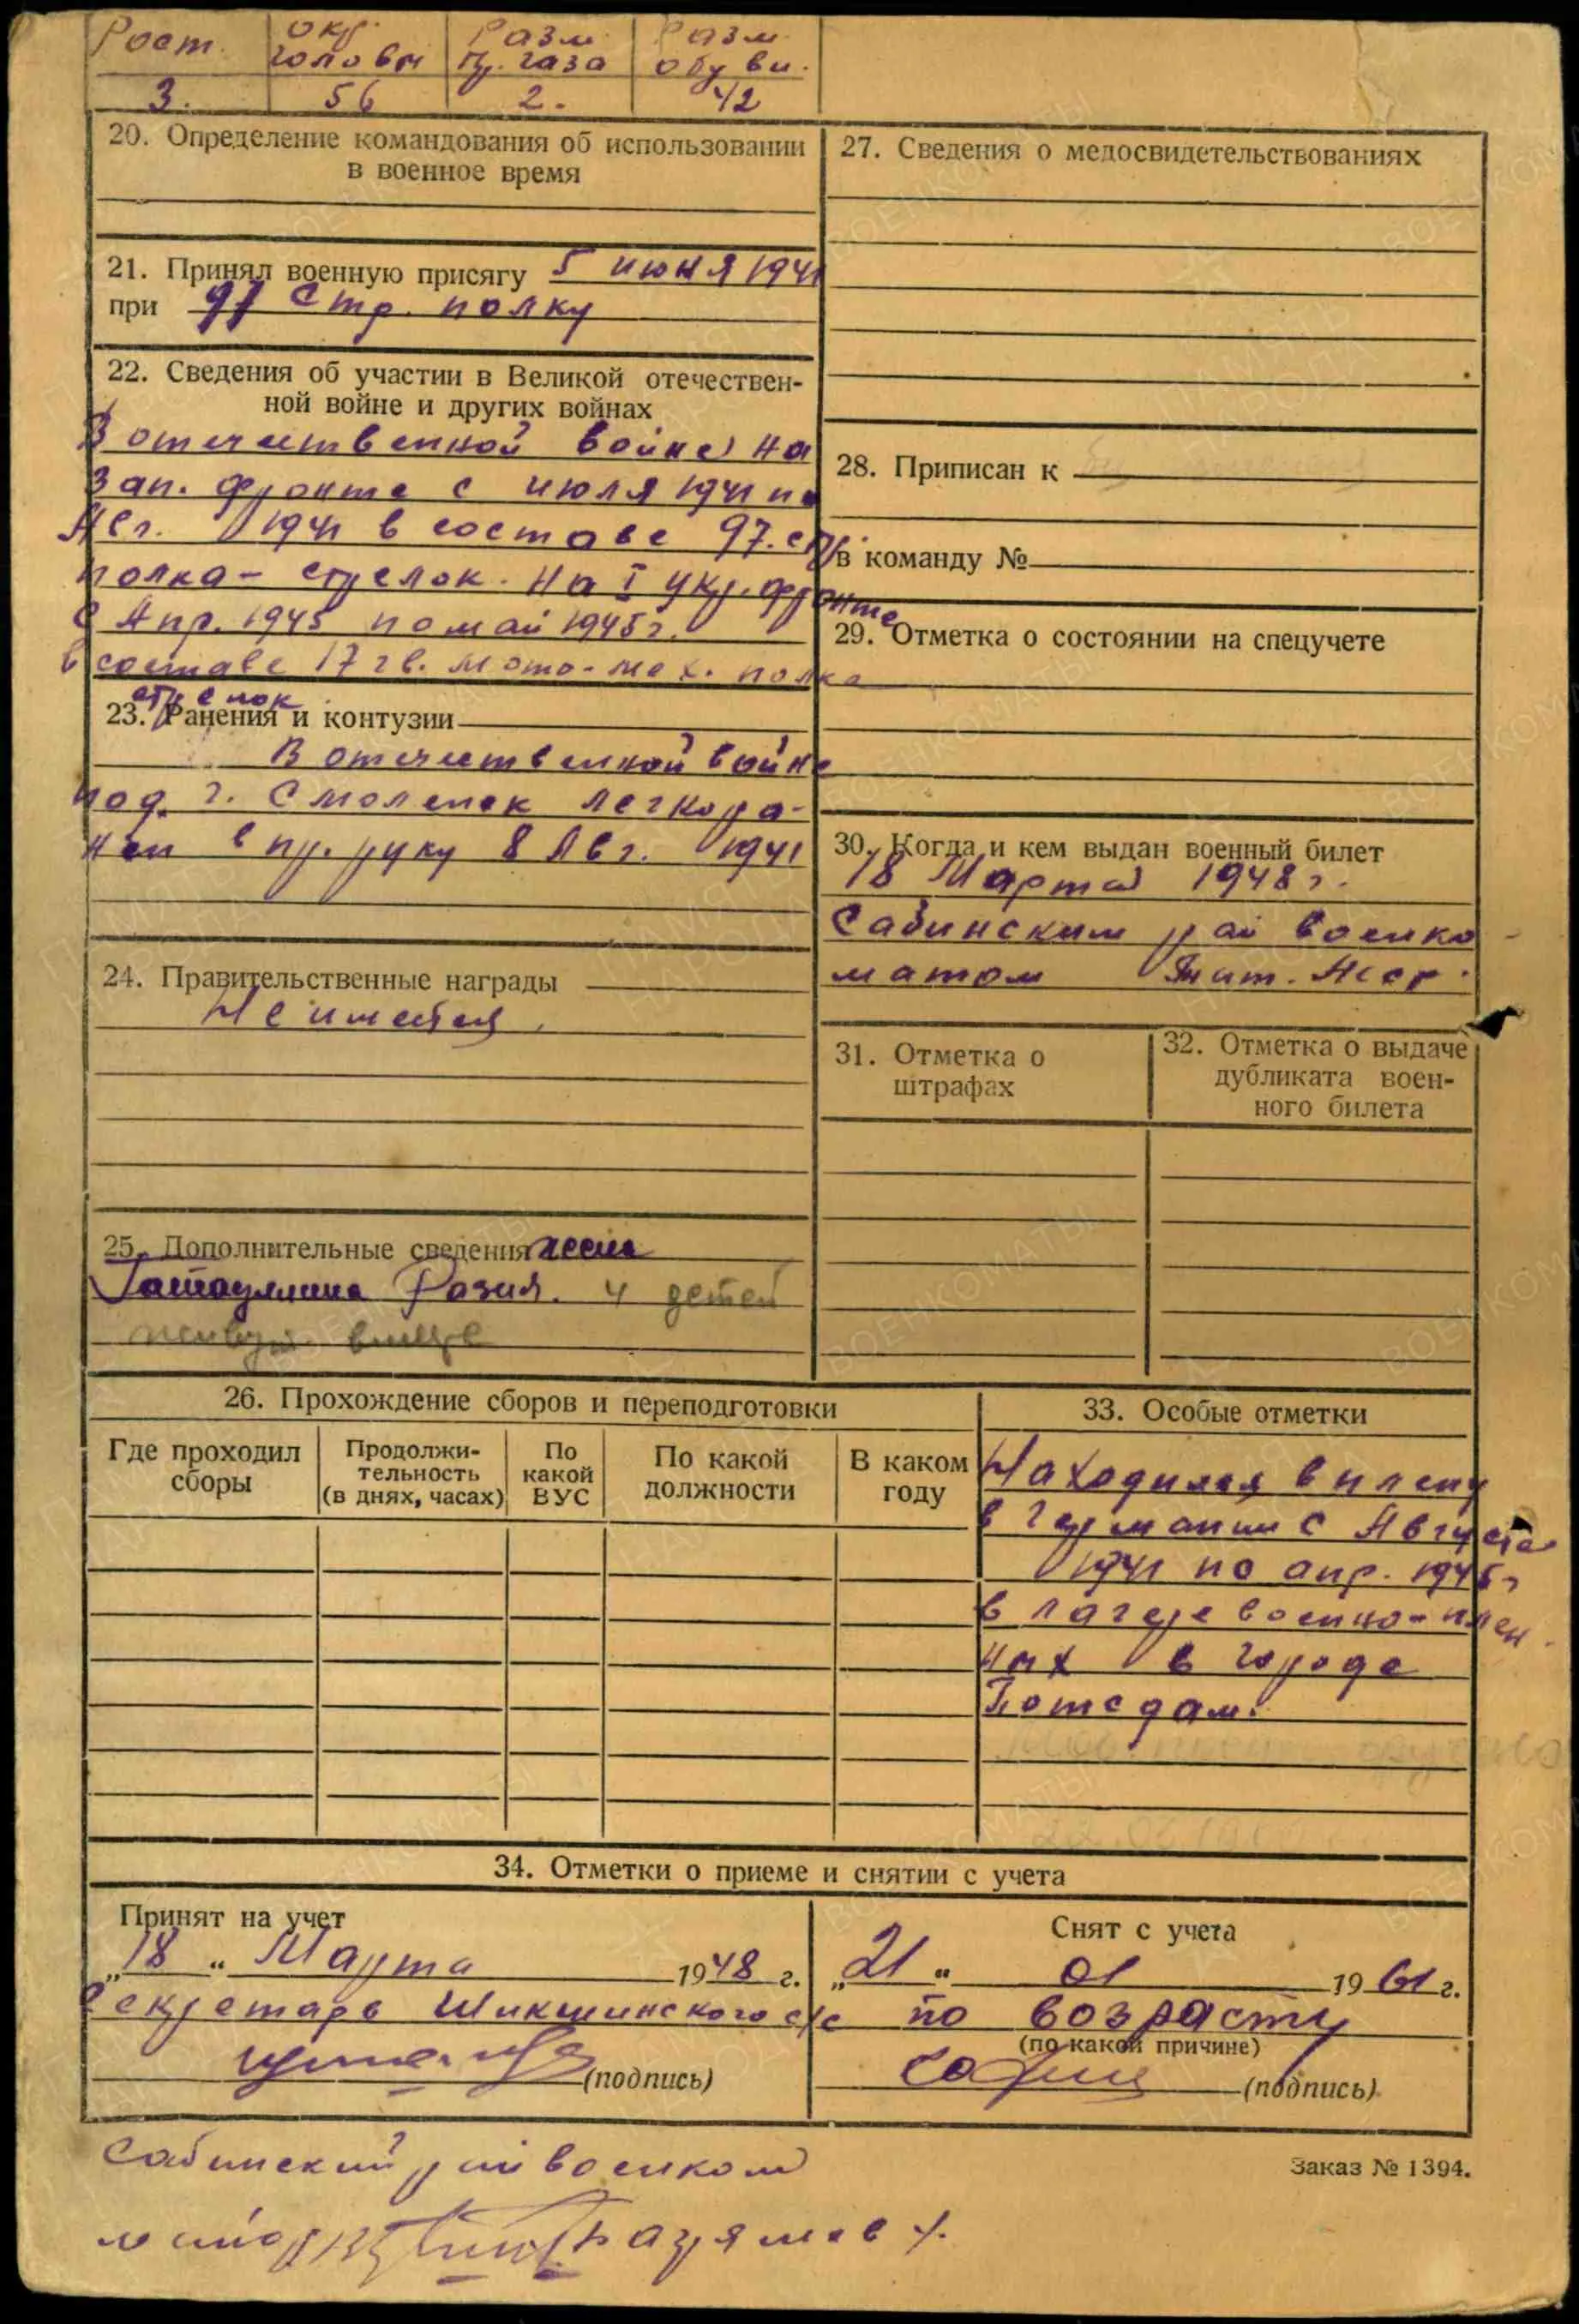 Рост. Окр. головы Разм. пр. газа Разм. обуви.
3. 56 2. 42
20. Определение командования об использовании
в военное время
21. Принял военную присягу 5 июня 1941
при 97 Стр. полку
22. Сведения об участии в Великой отечествен-
ной войне и других войнах
В отечественной войне на
Зап. фронте с июля 1941 по
Авг. 1941 в составе 97. стр.
полка - стрелок. На I Укр. фронте
с Апр. 1945 по май 1945 г.
в составе 17 гв. мото-мех. полка
стрелок
23. Ранения и контузии
В отечественной войне
под г. Смоленск легко ра-
нен в пр. руку 8 Авг. 1941
24. Правительственные награды
Не имеется.
25. Дополнительные сведения жена
Гатауллина Разия. 4 детей
живут вместе
26. Прохождение сборов и переподготовки
Где проходил
сборы
Продолжи-
тельность
(в днях, часах)
По
какой
ВУС
По какой
должности
В каком
году
27. Сведения о медосвидетельствованиях
28. Приписан к
в команду №
29. Отметка о состоянии на спецучете
30. Когда и кем выдан военный билет
18 Марта 1948 г.
Сабинским рай военко
матом Тат. Асср.
31. Отметка о
штрафах
32. Отметка о выдаче
дубликата воен-
ного билета
33. Особые отметки
Находился в плену
в германии с Августа
1941 по апр. 1945 г
в лагере военно-плен
ных в городе
Потсдам.
34. Отметки о приеме и снятии с учета
Принят на учет
„18“ Марта 1948 г.
Секретарь Шикшинского с/с
(подпись)
Снят с учета
„21“ 01 1961 г.
по возрасту
(по какой причине)
(подпись)
Сабинский райвоенком
майор
Заказ № 1394.